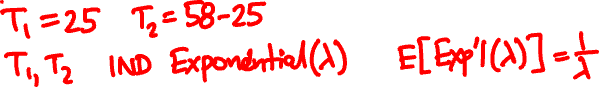 T₁ = 25 T₂ = 58-25
T₁, T₂ IND Exponential(λ) E[Exp'l(λ)] = 1/λ